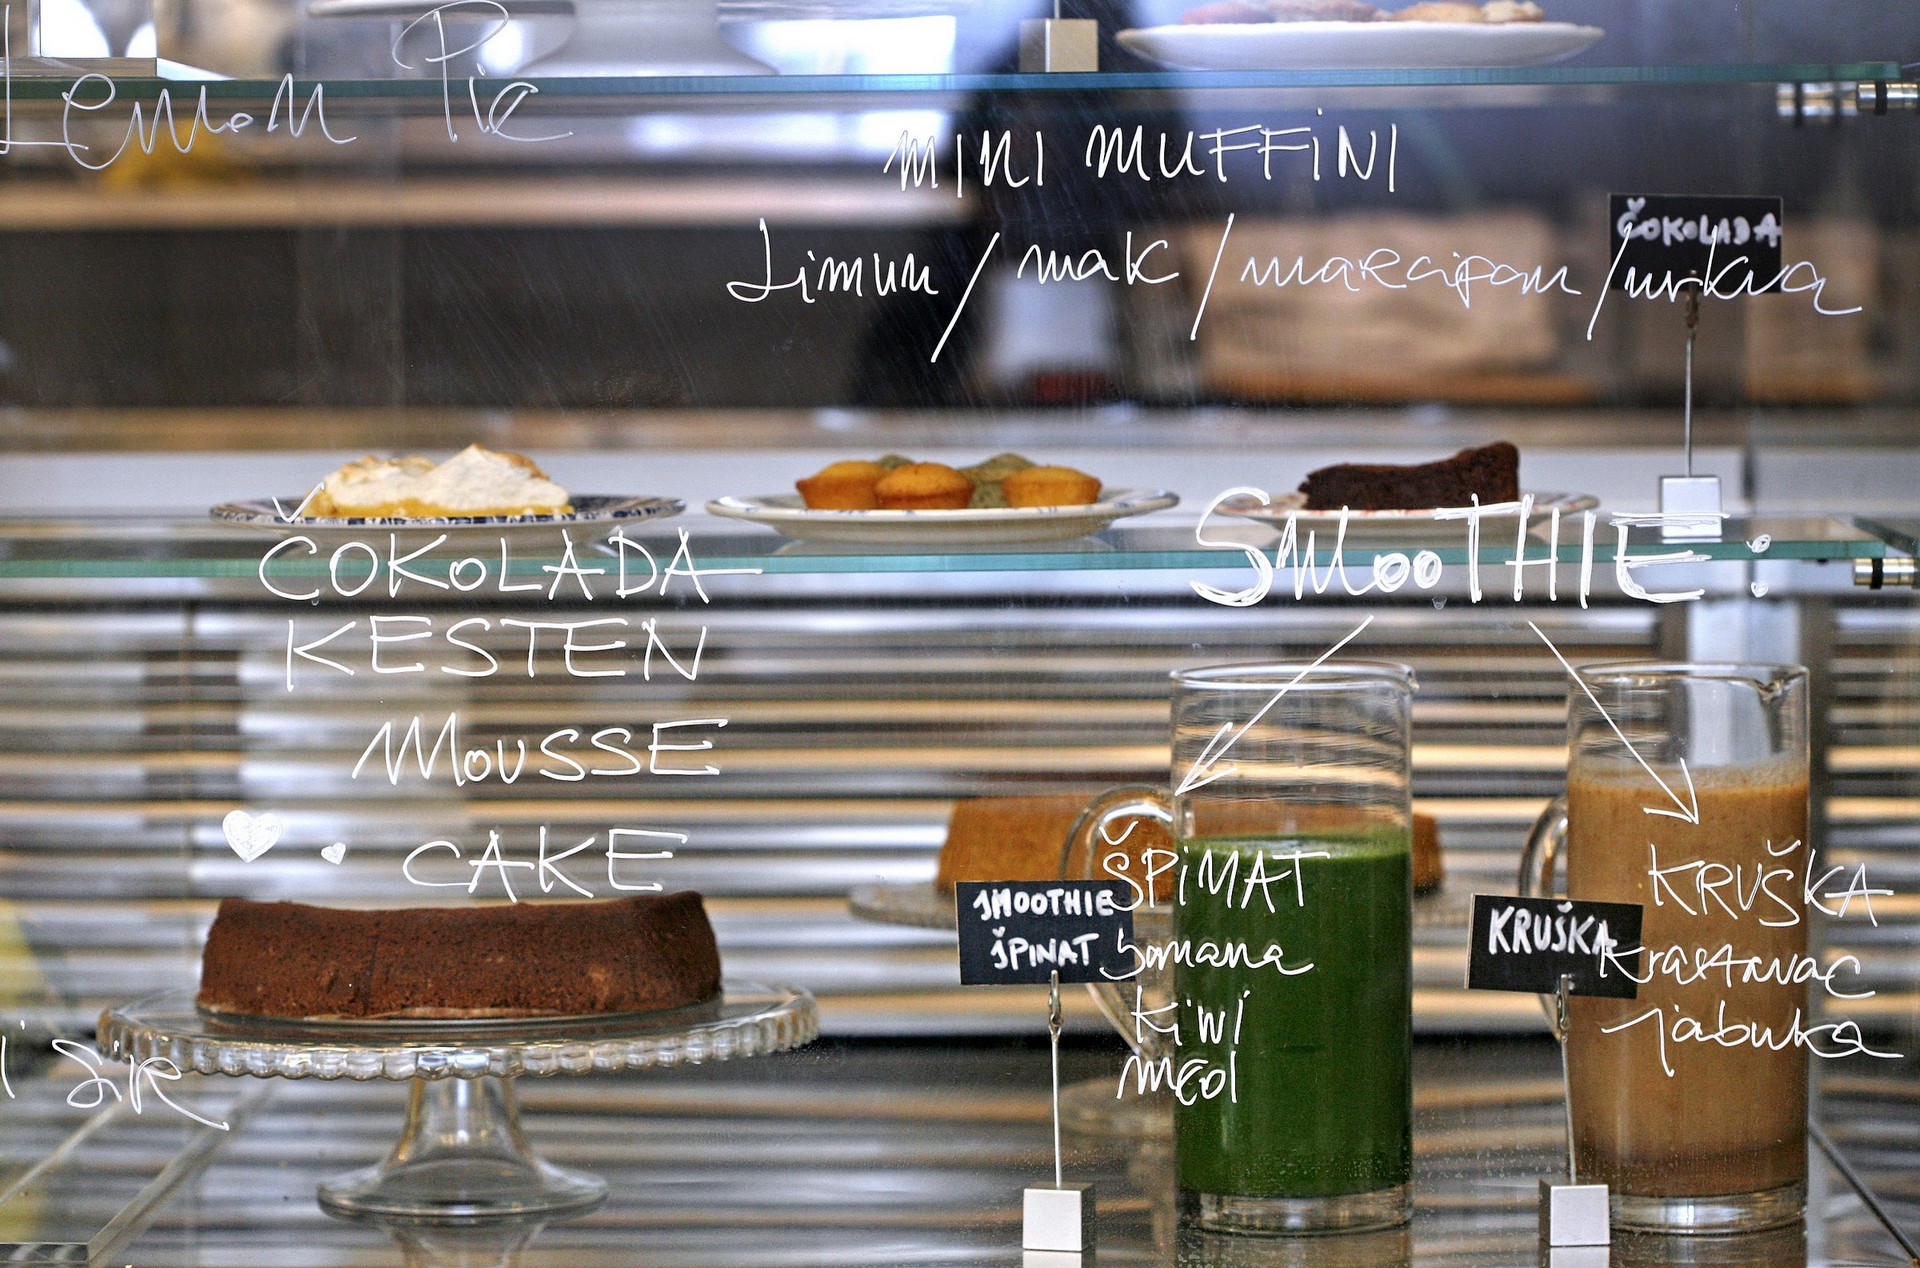 Lemon Pie
MINI MUFFINI
Limun / mak / marcipan / mrkva
ČOKOLADA
ČOKOLADA
KESTEN
MOUSSE
CAKE
SMOOTHIE:
ŠPINAT
banana
kiwi
med
SMOOTHIE
ŠPINAT
KRUŠKA
krastavac
jabuka
KRUŠKA
sir